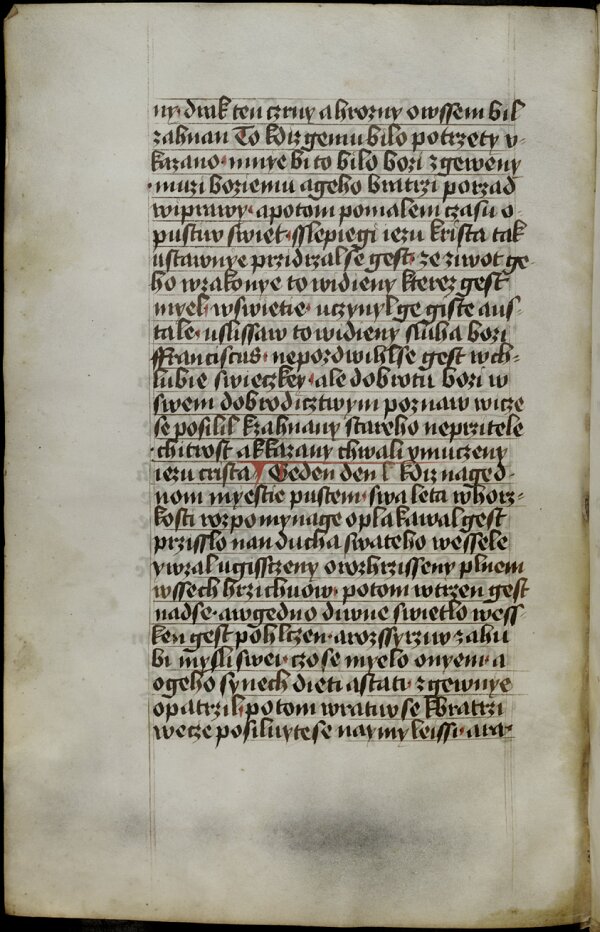 ny· drak ten czrny a hrozny owssem bil
zahnan To kdiz gemu bilo potrzety v-
kazano· mnye bi to bilo bozi zgeweny
·muzi boziemu a geho bratrzi porzad
wiprawy· a potom po malem czasu o-
pustiw swiet· sslepiegi iezu krista tak
ustawnye przidrzal se gest· ze ziwot ge-
ho w zakonye to widieny kterez gest
myel· w swietie· uczynyl ge giste a us-
tale· uslissaw to widieny sluha bozi
ffranciscus· nepozdwihl se gest w ch-
lubie swieczkey· ale dobrotu bozi w
swem dobrodicztwym poznaw wicze
se posilil k zahnany stareho neprzitele
·chitrost a k kazany chwali vmuczeny
iezu crista Geden den kdiz na ged-
nom myestie pustem· swa leta w horz-
kosti rozpomynage oplakawal gest
przisslo nan ducha swateho wessele
y wzal ugissczeny o rozhrzisseny plnem
wssech hrzichuow· potom wtrzen gest
nad se· a w gedno diwne swietlo wess-
ken gest pohlczen· a rozssyrziw zahu
bi mysli swei· czo se myelo o nyem· a
o geho synech dieti a stati· zgewnye
opatrzil· potom wratiw se k bratrzi
wecze posiluyte se naymyleissi· a ra-